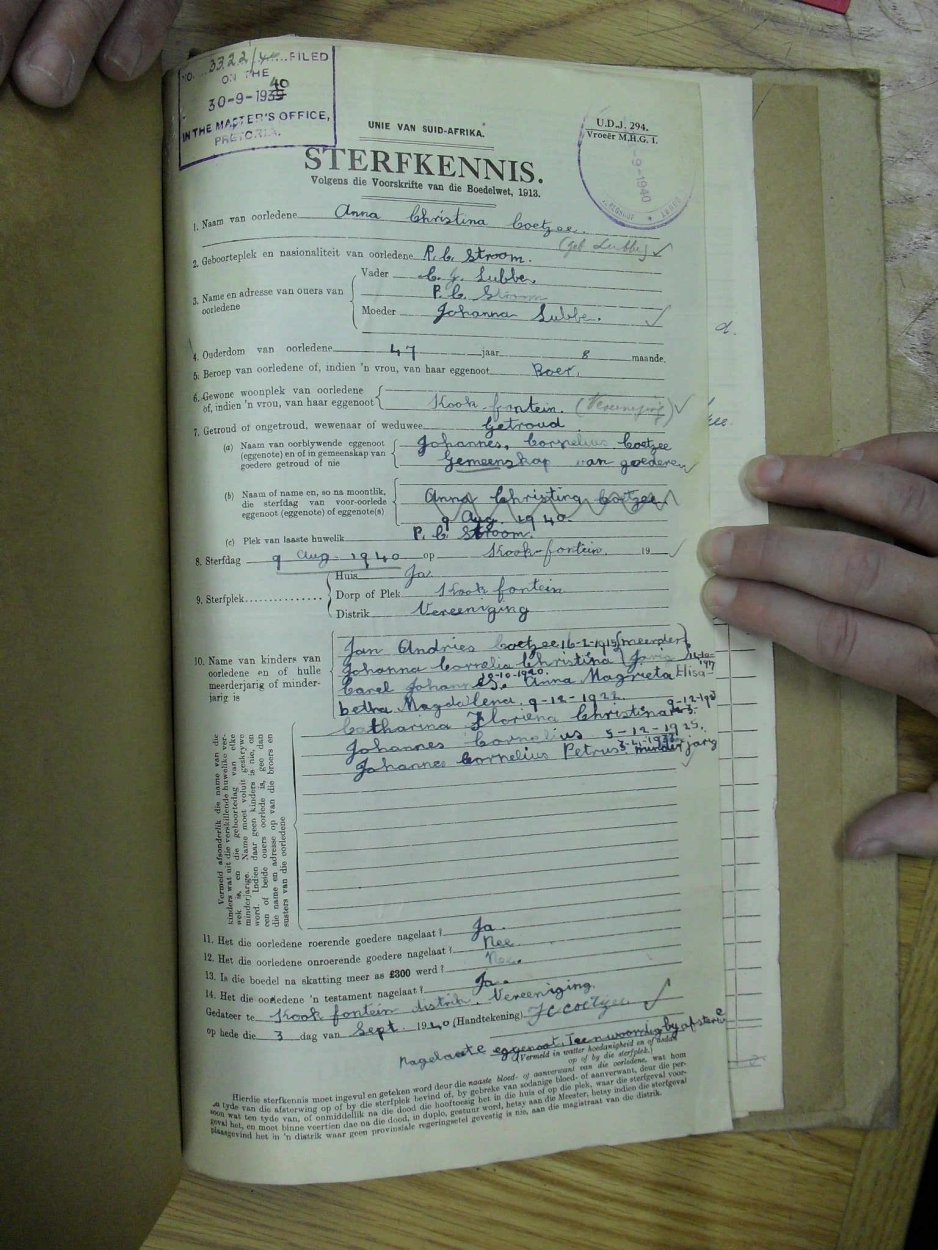 NO. 3322/40 FILED
ON THE
30-9-1939 40
IN THE MASTER'S OFFICE,
PRETORIA.
UNIE VAN SUID-AFRIKA.
U.D.J. 294.
Vroeër M.H.G. 1.
-9-1940
STERFKENNIS.
Volgens die Voorskrifte van die Boedelwet, 1913.
1. Naam van oorledene Anna Christina Coetzee.
(geb Lubbe)
2. Geboorteplek en nasionaliteit van oorledene P.C. Stroom.
3. Name en adresse van ouers van oorledene
Vader C. J. Lubbe.
P. C. Stroom
Moeder Johanna Lubbe.
4. Ouderdom van oorledene 47 jaar 8 maande.
5. Beroep van oorledene of, indien 'n vrou, van haar eggenoot Boer.
6. Gewone woonplek van oorledene
of, indien 'n vrou, van haar eggenoot Kook-fontein. (Vereeniging)
7. Getroud of ongetroud, wewenaar of weduwee Getroud
(a) Naam van oorblywende eggenoot
(eggenote) en of in gemeenskap van
goedere getroud of nie
Johannes, Cornelius Coetzee
Gemeenskap van goederen
(b) Naam of name en, so na moontlik,
die sterfdag van voor-oorlede
eggenoot (eggenote) of eggenote(s)
Anna Christina Coetzee
9 Aug. 1940.
(c) Plek van laaste huwelik P. C. Stroom.
8. Sterfdag 9 Aug. 1940 op Kook-fontein. 19
9. Sterfplek
Huis Ja
Dorp of Plek Kook fontein
Distrik Vereeniging
10. Name van kinders van
oorledene en of hulle
meerderjarig of minder-
jarig is
Jan Andries Coetzee 16-2-1915 (meerder
Johanna Cornelia Christina
Carel Johann 28-10-1920. Anna Magrieta Elisa-
betha Magdalena. 9-12-1922.
Catharina Floriena Christina
Johannes Cornelius 5-12-1925.
Johannes Cornelius Petrus minderjarig
Vermeld afsonderlik die name van die
kinders wat uit die verskillende huwelike ver-
wek is, en die geboortedag van elke
minderjarige. Name moet voluit geskrywe
word. Indien daar geen kinders is nie, en
een of beide ouers oorlede is, gee dan
die name en adresse op van die broers en
susters van die oorledene
11. Het die oorledene roerende goedere nagelaat? Ja.
12. Het die oorledene onroerende goedere nagelaat? Nee.
13. Is die boedel na skatting meer as £300 werd? Nee.
14. Het die oorledene 'n testament nagelaat? Ja.
Gedateer te Kook fontein distrik. Vereeniging.
op hede die 3 dag van Sept. 1940 (Handtekening) JC Coetzee
Nagelaate eggenoot. Teenwoordig by afsterwe
(Vermeld in watter hoedanigheid en of aldan
op of by die sterfplek.)
Hierdie sterfkennis moet ingevul en geteken word deur die naaste bloed- of aanverwant van die oorledene, wat hom
ten tyde van die afsterwing op of by die sterfplek bevind of, by gebreke van sodanige bloed- of aanverwant, deur die per-
soon wat ten tyde van, of onmiddellik na die dood die hooftoesig het in die huis of op die plek, waar die sterfgeval voor-
geval het, en moet binne veertien dae na die dood, in duplo, gestuur word, hetsy aan die Meester, hetsy indien die sterfgeval
plaasgevind het in 'n distrik waar geen provinsiale regeringsetel gevestig is nie, aan die magistraat van die distrik.